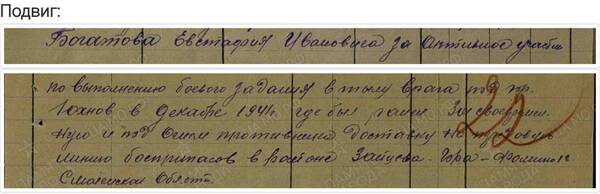 Подвиг:
Богатова Евстафия Ивановича за Активное участие
по выполнению боевого задания в тылу врага
Юхнов в Декабре 1941г. где был ранен. За своеврем.
ную и под Огнем противника доставку на передовую
линию боеприпасов в районе Зайцева-Гора-Фомино 1е
Смоленской Области.